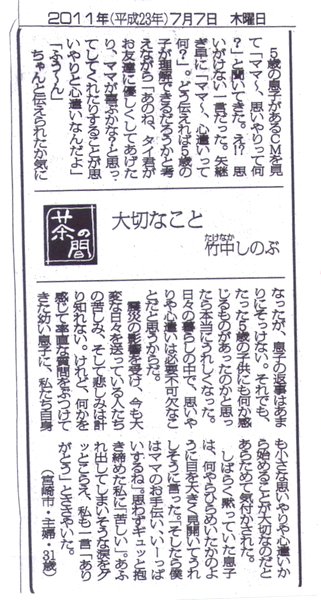 2011年(平成23年)7月7日　木曜日
茶の間
大切なこと
たけなか
竹中しのぶ
５歳の息子があるＣＭを見
て「ママ〜、思いやりって何
？」と聞いてきた。え!?　思
いがけない一言だった。矢継
ぎ早に「ママ〜、心遣いって
何？」。どう伝えれば５歳の
子が理解できるだろうかと考
えながら「あのね、タイ君が
お友達に優しくしてあげた
り、ママが喜ぶかな〜と思っ
てしてくれたりすることが思
いやりと心遣いなんだよ」
「ふう〜ん」
ちゃんと伝えられたか気に
なったが、息子の返事はあま
りにそっけない。それでも、
たった５歳の子供にも何か感
じるものがあったのかと思っ
たら本当にうれしくなった。
日々の暮らしの中で、思いや
りや心遣いは必要不可欠なこ
とだと思うからだ。
震災の影響を受け、今も大
変な日々を送っている人たち
の苦しみ、そして悲しみは計
り知れない。けれど、何かを
感じて率直な質問をぶつけて
きた幼い息子に、私たち自身
も小さな思いやりや心遣いか
ら始めることが大切なのだと
あらためて気付かされた。
しばらく黙っていた息子
は、何やらひらめいたかのよ
うに目を大きく見開いてうれ
しそうに言った。「そしたら僕
はママのお手伝い、いーっぱ
いするね」。思わずギュッと抱
き締めた私に「苦しい」。あふ
れ出してしまいそうな涙をグ
ッとこらえ、私も一言「あり
がとう」とささやいた。
（宮崎市・主婦・31歳）